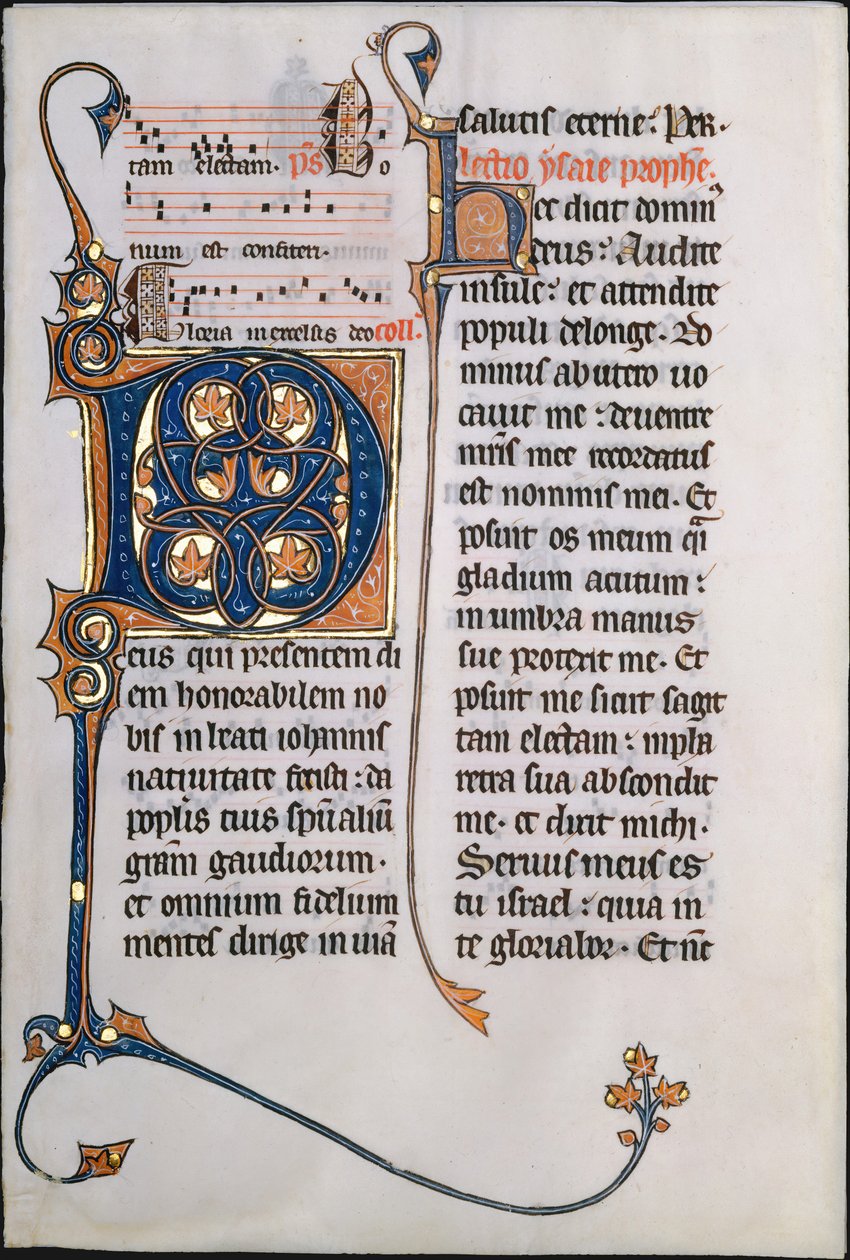 tam electam. ps Bo
num est confiteri.
Gloria in excelsis deo coll.
Deus qui presentem di
em honorabilem no
bis in beati iohannis
natiuitate fecisti : da
poplis tuis spūaliū
grām gaudiorum.
et omnium fidelium
mentes dirige in uiā
salutis eterne: Per.
lectio ysaie prophe.
hec dicit domin
deus: Audite
insule: et attendite
populi delonge. Do
minus ab utero uo
cauit me : de uentre
mris mee recordatus
est nominis mei. Et
posuit os meum qi
gladium acutum :
in umbra manus
sue protexit me. Et
posuit me sicut sagit
tam electam : in pha
retra sua abscondit
me. et dixit michi.
Seruus meus es
tu israel : quia in
te gloriabor. Et nc